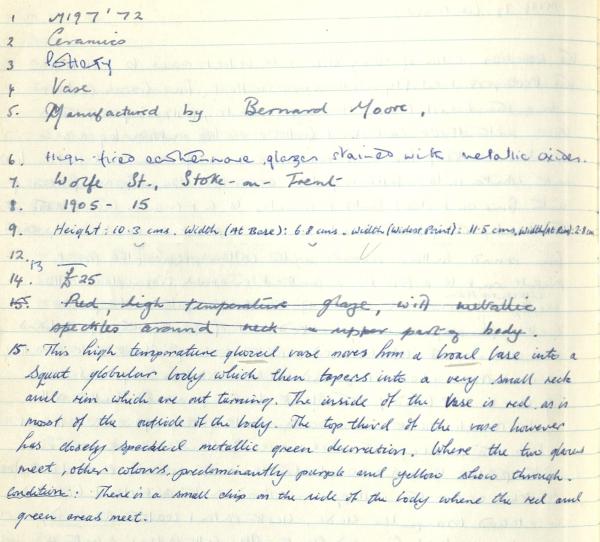 1 M197'72
2 Ceramics
3 Pottery
4 Vase
5. Manufactured by Bernard Moore.
6. High-fired earthenware, glazes stained with metallic oxides.
7. Wolfe St., Stoke-on-Trent
8. 1905-15
9. Height: 10.3 cms. Width (At Base): 6.8 cms. Width (Widest Point): 11.5 cms, Width (At Rim): 2.8 cm
12.
13 —
14. £25
15. Red, high temperature glaze, with metallic
speckles around neck & upper part of body.
15. This high temperature glazed vase moves from a broad base into a
squat globular body which then tapers into a very small neck
and rim which are out turning. The inside of the vase is red, as is
most of the outside of the body. The top third of the vase however
has closely speckled metallic green decoration. Where the two glazes
meet, other colours, predominantly purple and yellow show through.
Condition: There is a small chip on the side of the body where the red and
green areas meet.